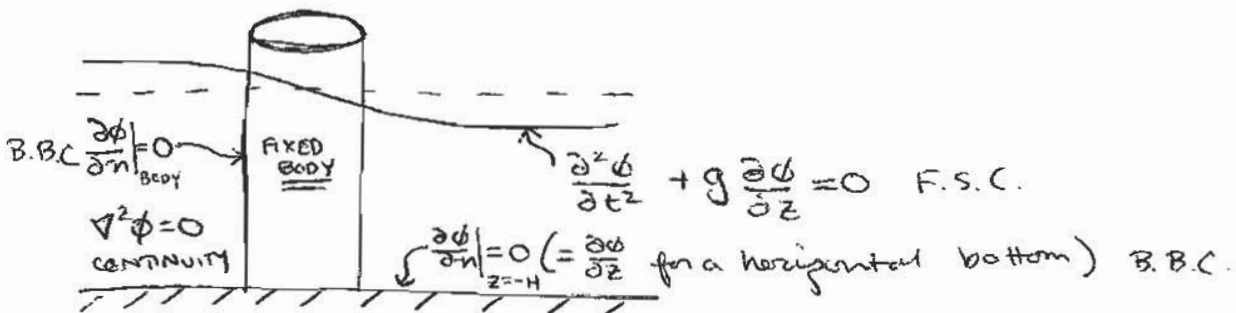 B.B.C ∂φ/∂n|BODY = 0
FIXED
BODY
∂²φ/∂t² + g ∂φ/∂z = 0 F.S.C.
∇²φ = 0
CONTINUITY
∂φ/∂n|z=-H = 0 (= ∂φ/∂z for a horizontal bottom) B.B.C.